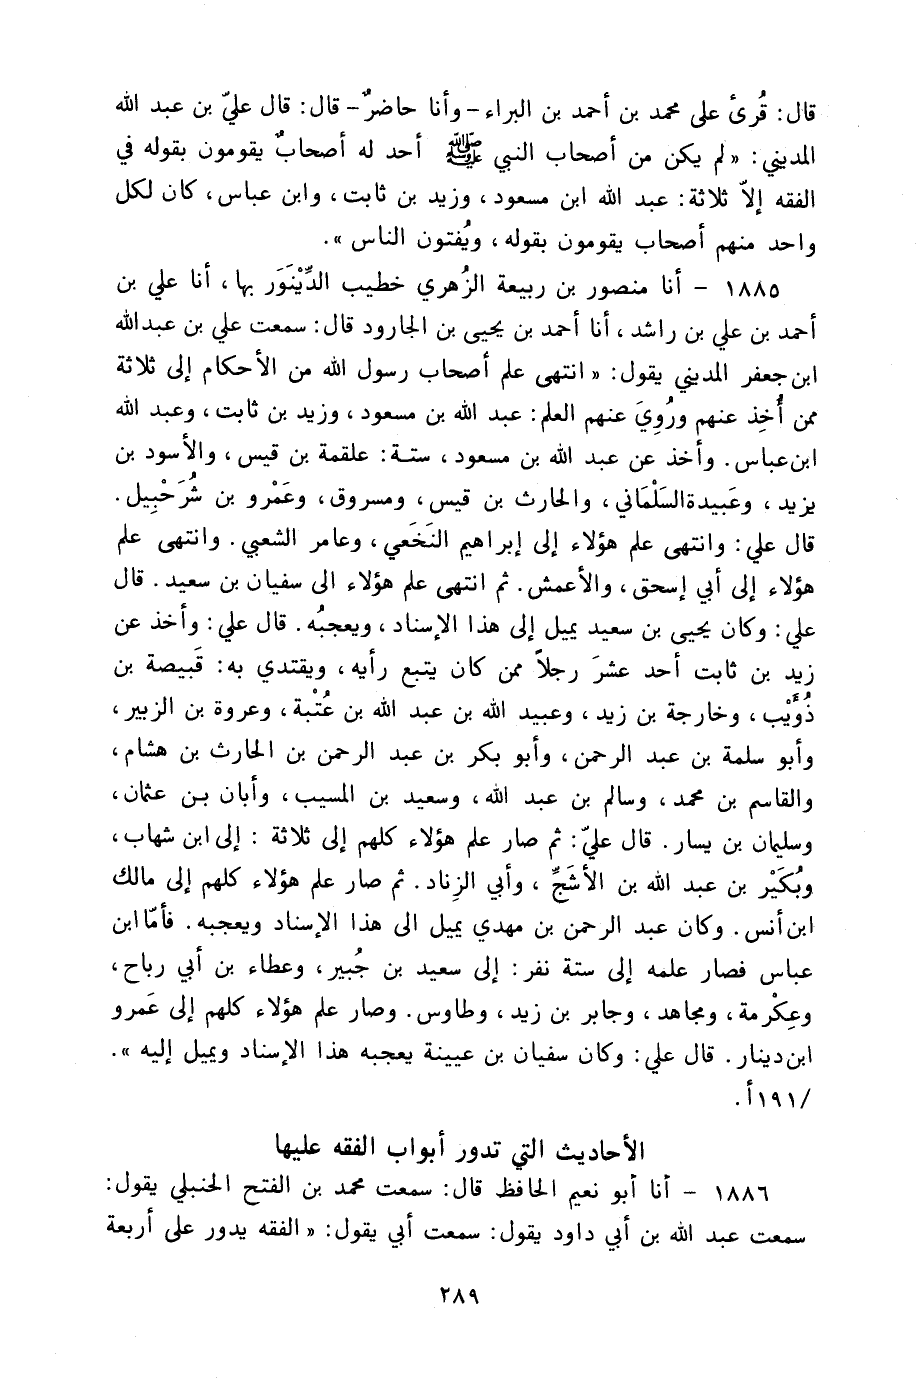 قال: قُرىءُ على محمد بن أحمد بن البراء - وأنا حاضرٌ - قال: قال عليّ بن عبد الله
المديني: « لم يكن من أصحاب النبي ﷺ أحد له أصحابٌ يقومون بقوله في
الفقه إلاّ ثلاثة: عبد الله ابن مسعود، وزيد بن ثابت، وابن عباس، كان لكل
واحد منهم أصحاب يقومون بقوله، ويُفتون الناس ».
١٨٨٥ - أنا منصور بن ربيعة الزُهري خطيب الدِّيْنَوَر بها، أنا علي بن
أحمد بن علي بن راشد، أنا أحمد بن يحيى بن الجارود قال: سمعت علي بن عبدالله
ابن جعفر المديني يقول: « انتهى علم أصحاب رسول الله من الأحكام إلى ثلاثة
ممن أُخِذ عنهم ورُوِيَ عنهم العلم: عبد الله بن مسعود، وزيد بن ثابت، وعبد الله
ابن عباس. وأخذ عن عبد الله بن مسعود، ستة: علقمة بن قيس، والأسود بن
يزيد، وعَبيدةالسَلْماني، والحارث بن قيس، ومسروق، وعَمْرو بن شُرَحْبيل.
قال علي: وانتهى علم هؤلاء إلى إبراهيم النَخَعي، وعامر الشعبي. وانتهى علم
هؤلاء إلى أبي إسحق، والأعمش. ثم انتهى علم هؤلاء الى سفيان بن سعيد. قال
علي: وكان يحيى بن سعيد يميل إلى هذا الإسناد، ويعجبُه. قال علي: وأخذ عن
زيد بن ثابت أحد عشرَ رجلاً ممن كان يتبع رأيه، ويقتدي به: قَبيصة بن
ذُؤَيْب، وخارجة بن زيد، وعبيد الله بن عبد الله بن عُتْبة، وعروة بن الزبير،
وأبو سلمة بن عبد الرحمن، وأبو بكر بن عبد الرحمن بن الحارث بن هشام،
والقاسم بن محمد، وسالم بن عبد الله، وسعيد بن المسيب، وأبان بن عثمان،
وسليمان بن يسار. قال عليّ: ثم صار علم هؤلاء كلهم إلى ثلاثة : إلى ابن شهاب،
وبُكَيْر بن عبد الله بن الأشَجِّ، وأبي الزِناد. ثم صار علم هؤلاء كلهم إلى مالك
ابن أنس. وكان عبد الرحمن بن مهدي يميل الى هذا الإسناد ويعجبه. فأمّا ابن
عباس فصار علمه إلى ستة نفر: إلى سعيد بن جُبير، وعطاء بن أبي رباح،
وعِكْرمة، ومجاهد، وجابر بن زيد، وطاوس. وصار علم هؤلاء كلهم إلى عَمرو
ابن دينار. قال علي: وكان سفيان بن عيينة يعجبه هذا الإسناد ويميل إليه ».
/١٩١أ.
الأحاديث التي تدور أبواب الفقه عليها
١٨٨٦ - أنا أبو نعيم الحافظ قال: سمعت محمد بن الفتح الحنبلي يقول:
سمعت عبد الله بن أبي داود يقول: سمعت أبي يقول: « الفقه يدور على أربعة
٢٨٩